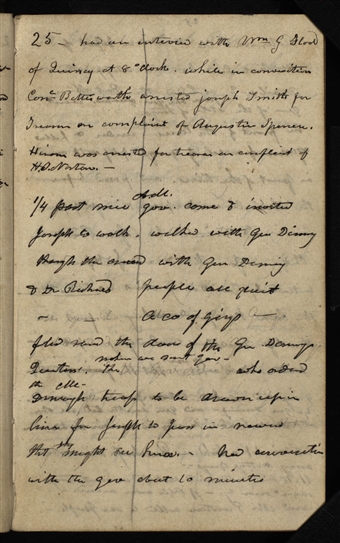 25 had an interview with Wm G Flood
of Quincy at 8 oclock. while in convesation
Con. Bettesworth arrested joseph Smith for
Treason on complaint of Augustin Spencer.
Hirum was arrested for treason on complaint of
H. O. Norton. —
1/4 past nine gov. come & invited
Joseph to walk walked with Gen Deming
through the with Gen Deming
& Dr Richards people all quiet
A co of Greys —
filed round the door of the Gen Demings
Quarters. the who orderd
the troop to be drawn up in
line for Joseph to pass in
that might see him. - had conversation
with the gov about 10 minutes